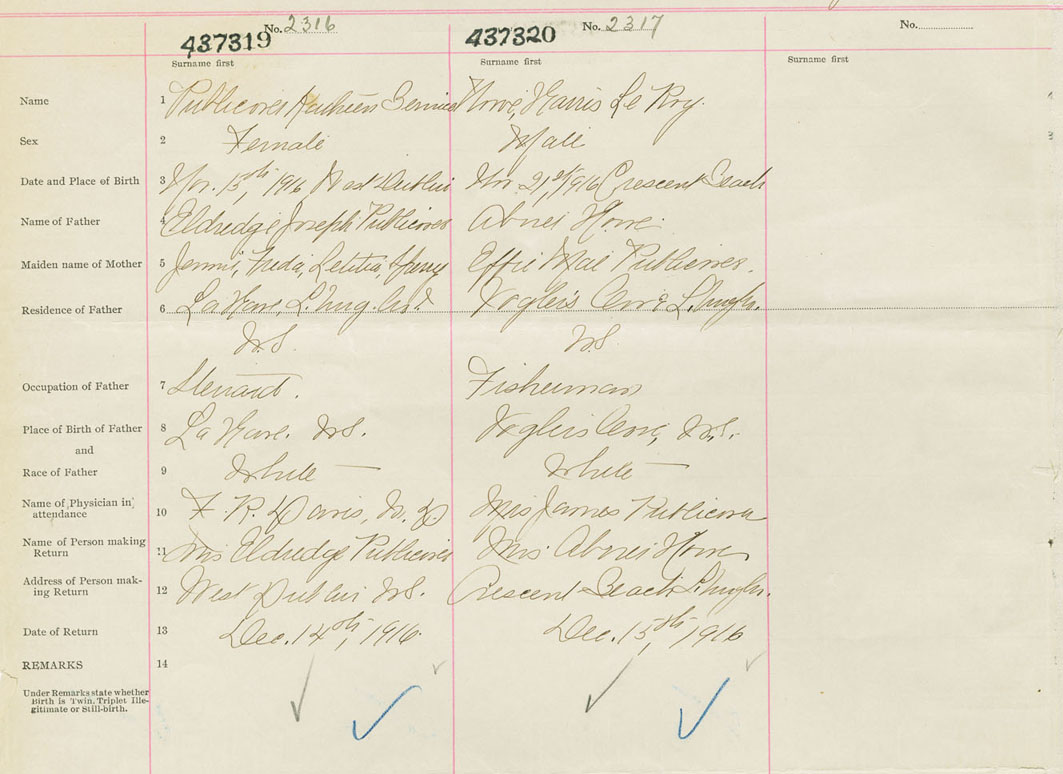 No. 2316 No. 2317 No.
437319 437320
Surname first Surname first Surname first
Name 1 Publicover Bernice Howe, Harris Le Roy.
Sex 2 Female Male
Date and Place of Birth 3 Nov. 13th, 1916 West Dublin Nov 21st 1916 Crescent Beach
Name of Father 4 Eldredge Joseph Publicover Abner Howe.
Maiden name of Mother 5 Jennie, Freda, Letitia, Effie Mae Publicover.
Residence of Father 6 La Have, Vogler's Cove
N.S. N.S.
Occupation of Father 7 Steward. Fisherman
Place of Birth of Father 8 La Have. N.S. Vogler's Cove, N.S.
and
Race of Father 9 White White
Name of Physician in
attendance 10 F. R. Davis, M.D. Mrs James Publicover
Name of Person making
Return 11 Mrs Eldredge Publicover Mrs Abner Howe
Address of Person mak-
ing Return 12 West Dublin N.S. Crescent Beach
Date of Return 13 Dec. 14th, 1916. Dec. 15th, 1916
REMARKS 14
Under Remarks state whether
Birth is Twin, Triplet Ille-
gitimate or Still-birth.